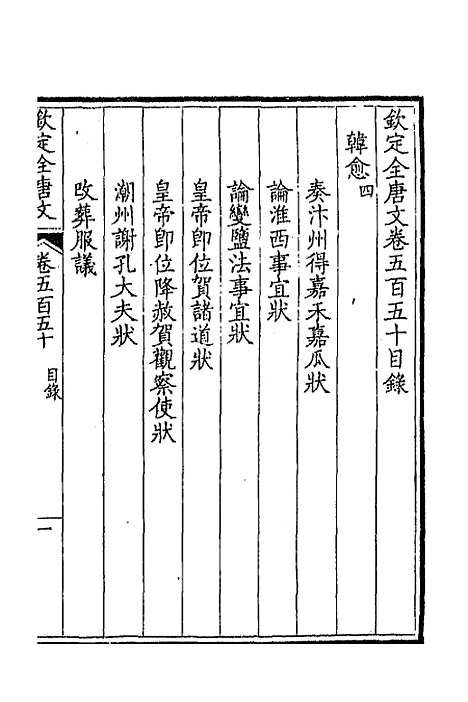 欽定全唐文卷五百五十目錄
韓愈四
奏汴州得嘉禾嘉瓜狀
論淮西事宜狀
論變鹽法事宜狀
皇帝即位賀諸道狀
皇帝即位降赦賀觀察使狀
潮州謝孔大夫狀
改葬服議
欽定全唐文 卷五百五十 目錄 一